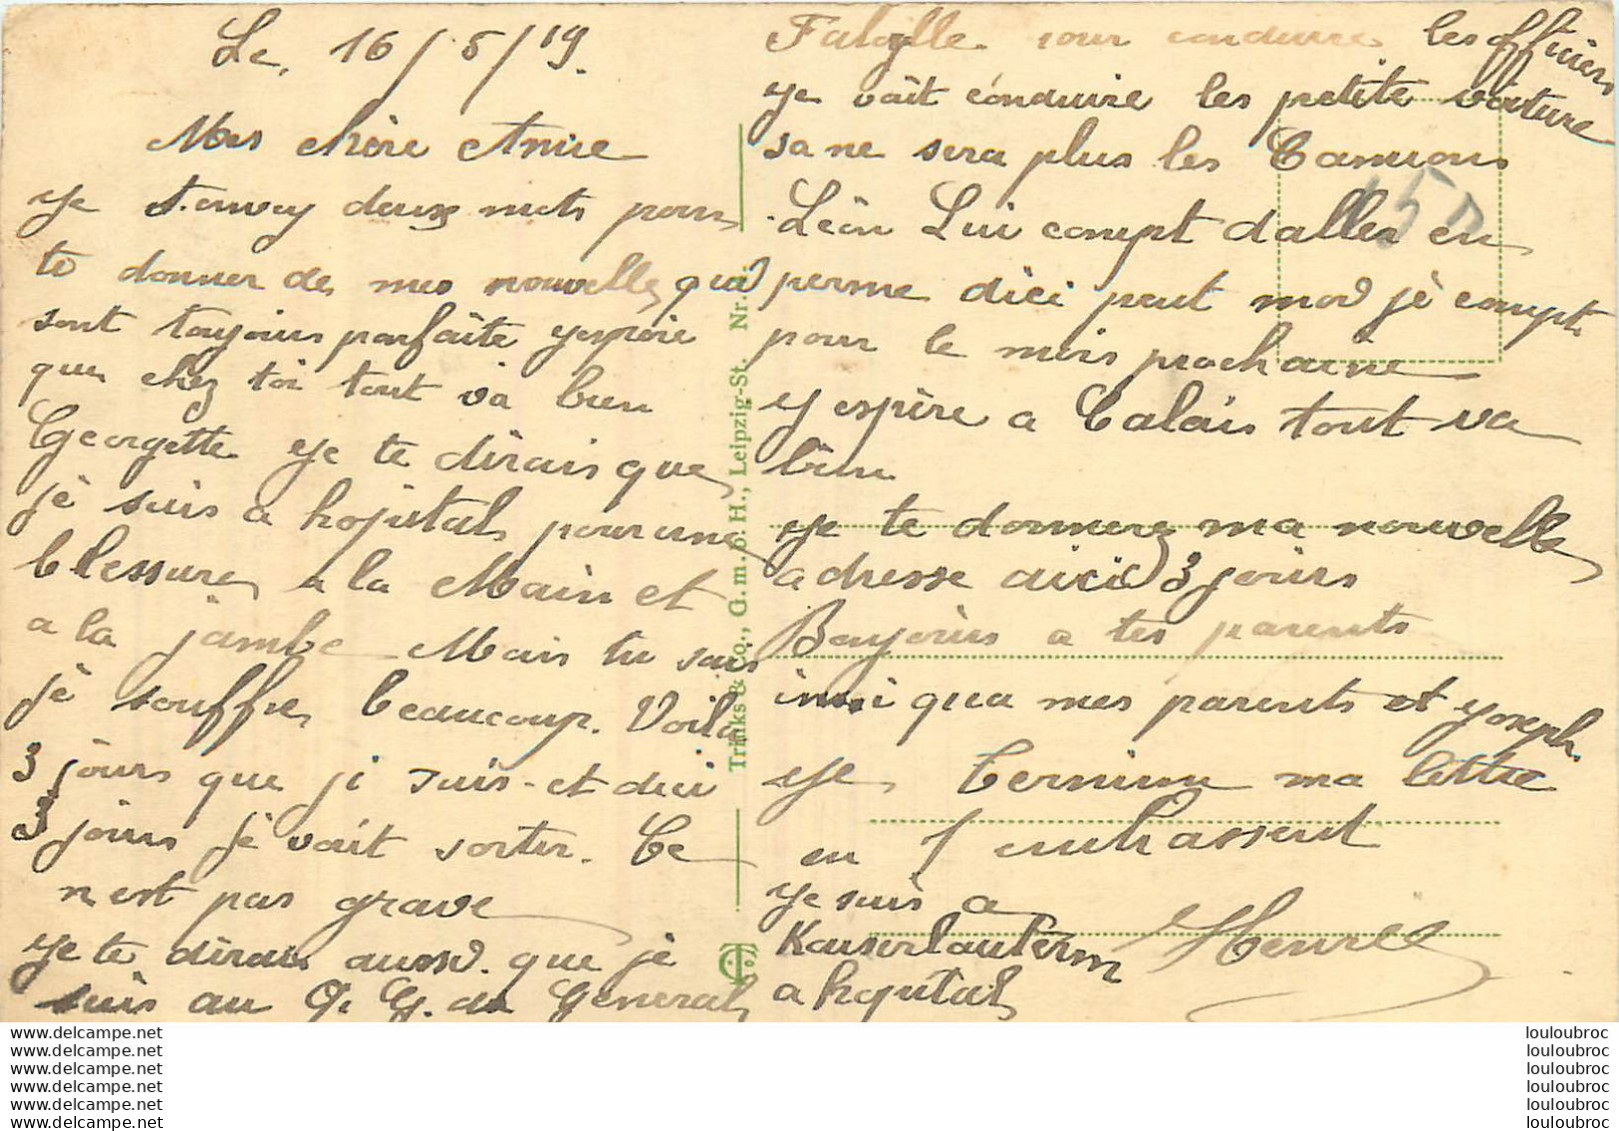 Le, 16/5/19.
Mes chère Amie
je t'envoy deux mots pour
te donner de mes nouvelles qui
sont toujours parfaite jespère
que chez toi tout va bien
Georgette je te dirais que
je suis a hopital pour une
blessure a la Main et
a la jambe Mais tu sais
je souffre beaucoup. Voila
3 jours que ji suis et dici
3 jours je vait sortir. Ce
n'est pas grave
je te dirais aussi que je
suis au Q. G. du General
Fatolle pour conduire les officiers
je vait conduire les petite voiture
sa ne sera plus les Camions
Léon Lui compt daller en
perme dici peut moi je compt
pour le mois prochaine
j espère a Calais tout va
bien
je te donnerez ma nouvelle
adresse dici 3 jours
Bonjours a tes parents
insi qua mes parents et joseph
je termine ma lettre
en t enbrassent
je suis a
Kaiserlautern
a hopital
Henri
150
Trinks & Co., G. m. b. H., Leipzig-St. Nr.
www.delcampe.net
www.delcampe.net
www.delcampe.net
www.delcampe.net
www.delcampe.net
www.delcampe.net
louloubroc
louloubroc
louloubroc
louloubroc
louloubroc
louloubroc